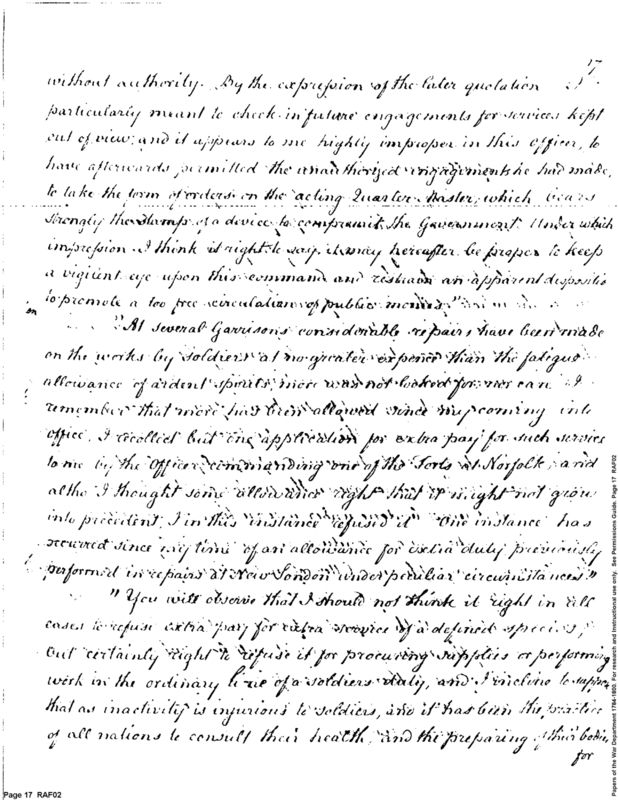 17
without authority. By the expression of the later quotation I
particularly meant to check in future engagements for services kept
out of view; and it appears to me highly improper in this officer, to
have afterwards permitted the unauthorized engagements he had made,
to take the form of orders on the acting Quarter Master, which bears
strongly the stamp of a device to compromit the Government. Under which
impression I think it right to say, it may hereafter be proper to keep
a vigilent eye upon this command and restrain an apparent dispositio
to promote a too free circulation of public monies."
"At several Garrisons considerable repairs have been made
on the works by soldiers at no greater expence than the fatigue
allowance of ardent spirits; more was not looked for, nor can I
remember that more has been allowed since my coming into
office. I recollect but one application for extra pay for such service
to me by the officer commanding one of the Forts at Norfolk, and
altho I thought some allowance right that it might not grow
into precedent, I in this "instance refused it" One instance has
occurred since my time of an allowance for extra duty previously
performed in repairs at New London under peculiar circumstances."
"You will observe that I should not think it right in all
cases to refuse extra pay for extra service of a defined species,
but certainly right to refuse it for procuring supplies or performing
work in the ordinary line of a soldiers duty, and I incline to suppose
that as inactivity is injurious to soldiers, and it has been the practice
of all nations to consult their health, and the preparing of their bodies
for
Page 17 RAF02
Papers of the War Department 1784-1800. For research and instructional use only. See Permissions Guide. Page 17 RAF02